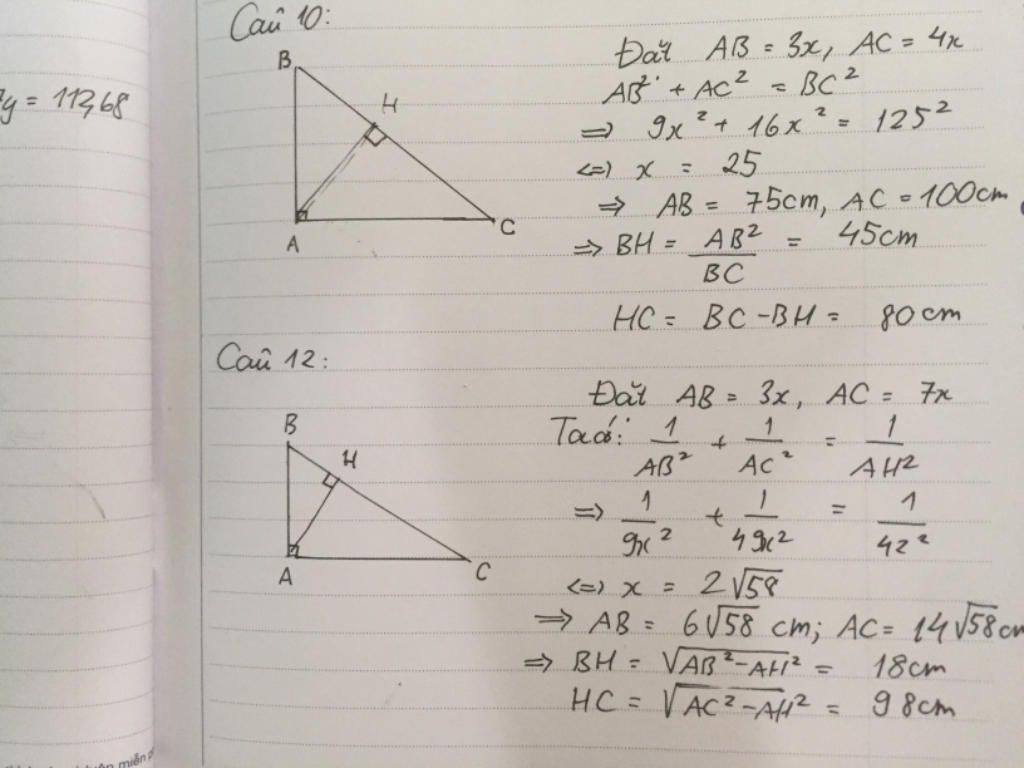 y = 112,68
Câu 10:
B
H
A
C
Đặt AB = 3x, AC = 4x
AB² + AC² = BC²
=> 9x² + 16x² = 125²
<=> x = 25
=> AB = 75cm, AC = 100cm
=> BH = AB²/BC = 45cm
HC = BC - BH = 80cm
Câu 12:
B
H
A
C
Đặt AB = 3x, AC = 7x
Ta có: 1/AB² + 1/AC² = 1/AH²
=> 1/9x² + 1/49x² = 1/42²
<=> x = 2√58
=> AB = 6√58 cm; AC = 14√58 cm
=> BH = √AB²-AH² = 18cm
HC = √AC²-AH² = 98cm
miễn